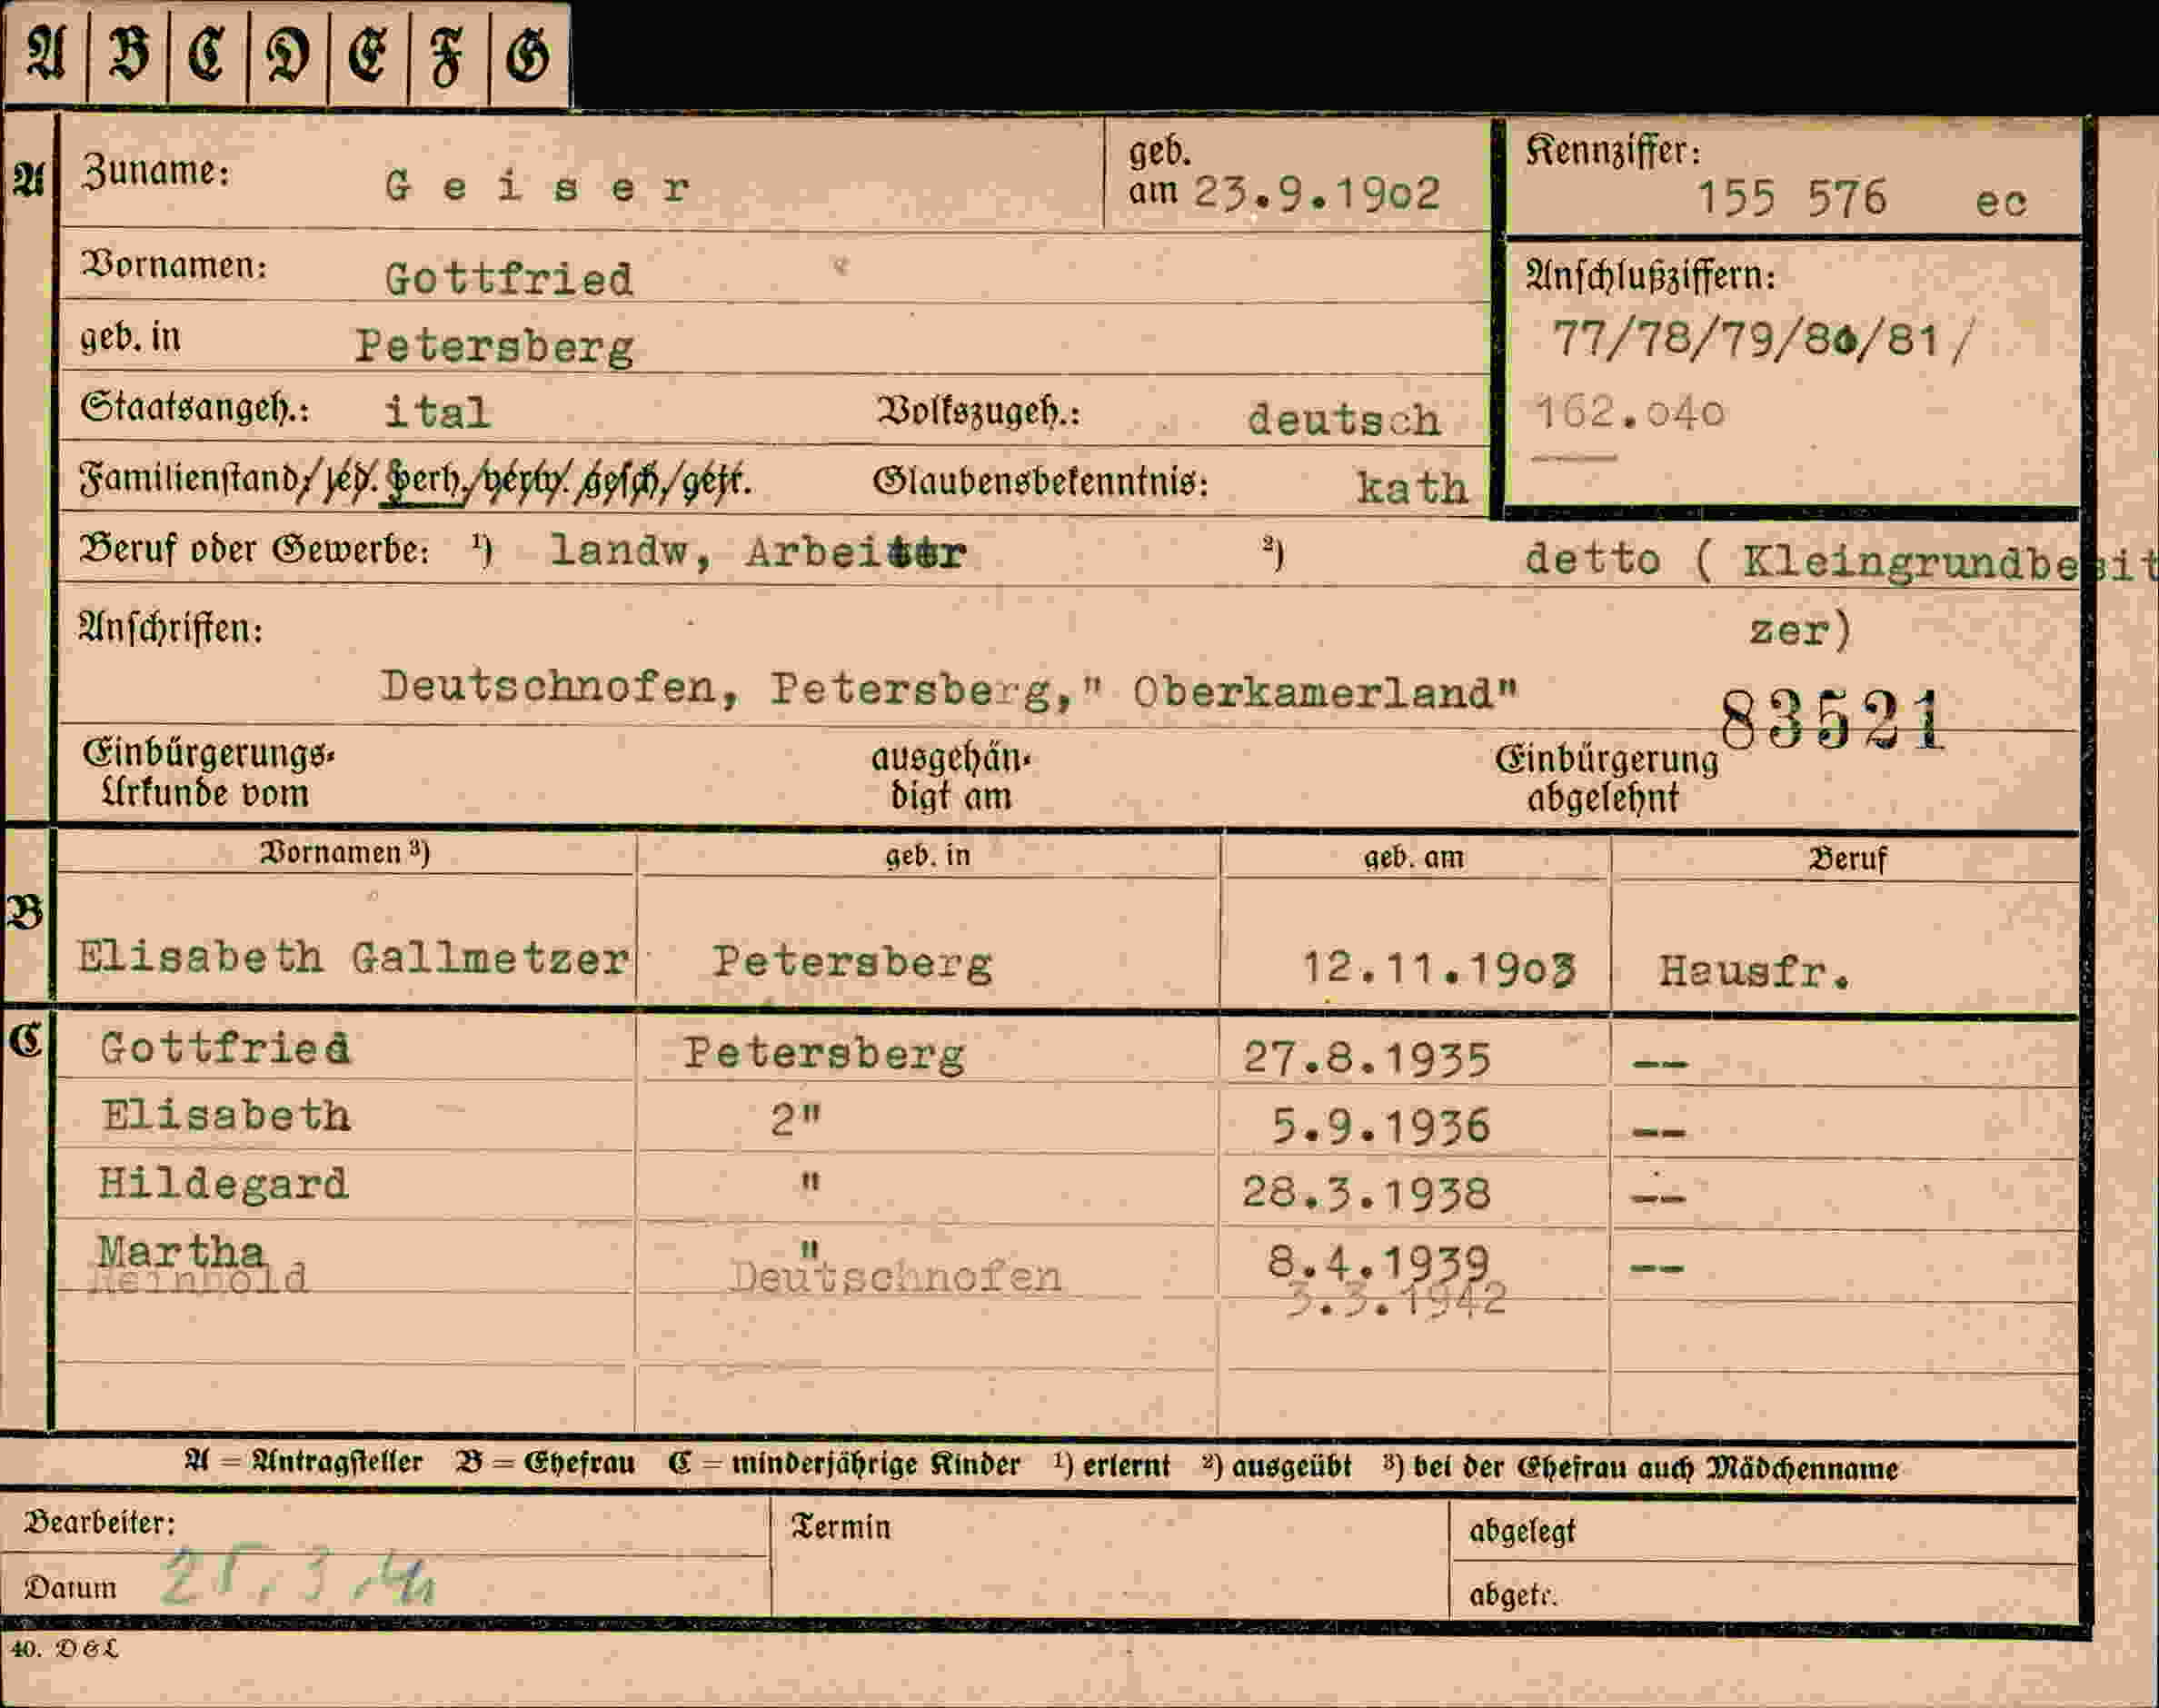 A B C D E F G
A Zuname: Geiser geb. am 23.9.1902 Kennziffer: 155 576 ec
Vornamen: Gottfried
Anschlußziffern:
geb. in Petersberg 77/78/79/80/81/
Staatsangeh.: ital Volkszugeh.: deutsch 162.040
Familienstand/led. verh./verw. gesch./getr. Glaubensbekenntnis: kath
Beruf oder Gewerbe: ¹) landw, Arbeiter ²) detto ( Kleingrundbesit
Anschriften: zer)
Deutschnofen, Petersberg," Oberkamerland"
83521
Einbürgerungs- ausgehän- Einbürgerung
Urkunde vom digt am abgelehnt
Vornamen ³) geb. in geb. am Beruf
B Elisabeth Gallmetzer Petersberg 12.11.1903 Hausfr.
C Gottfried Petersberg 27.8.1935 --
Elisabeth 2" 5.9.1936 --
Hildegard " 28.3.1938 --
Martha " 8.4.1939 --
Reinhold Deutschnofen 3.3.1942
A = Antragsteller B = Ehefrau C = minderjährige Kinder ¹) erlernt ²) ausgeübt ³) bei der Ehefrau auch Mädchenname
Bearbeiter: Termin abgelegt
Datum abgetr.
40. DEL